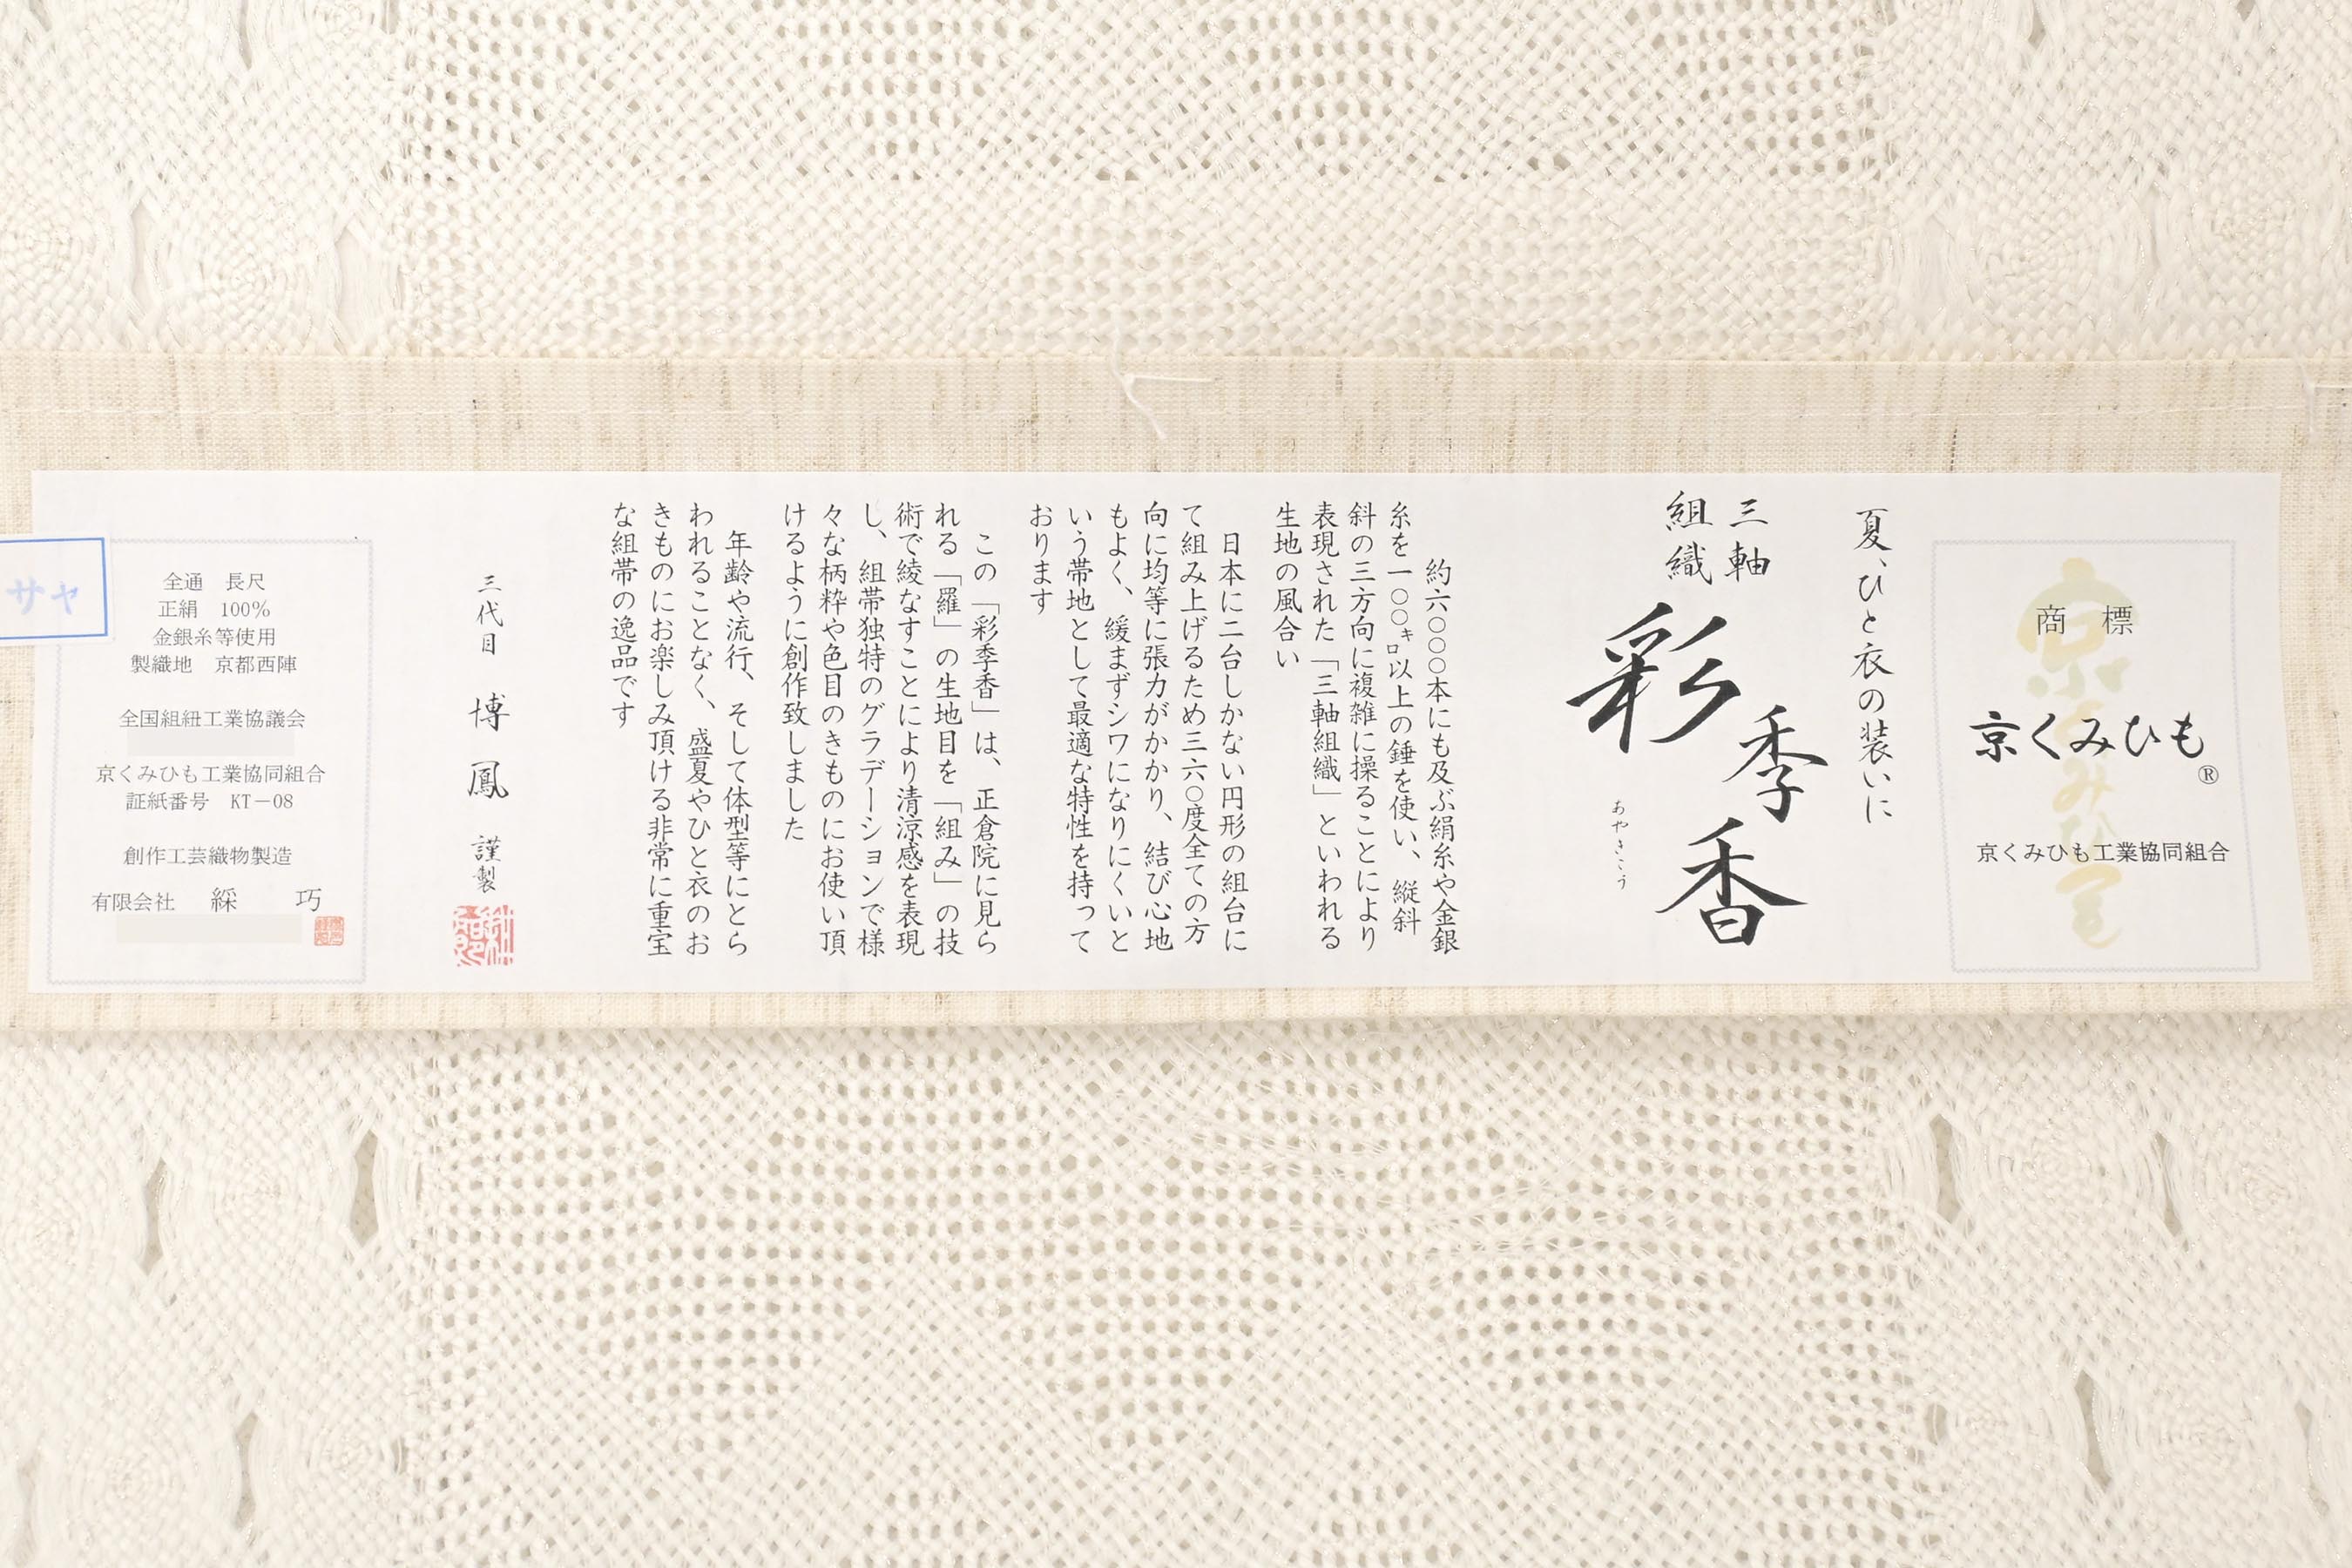 商 標
京くみひも®
京くみひも工業協同組合
夏、ひと衣の装いに
三軸
組織
彩季香
あやきこう
約六〇〇〇本にも及ぶ絹糸や金銀
糸を一〇〇㌔以上の錘を使い、縦斜
斜の三方向に複雑に操ることにより
表現された「三軸組織」といわれる
生地の風合い
日本に二台しかない円形の組台に
て組み上げるため三六〇度全ての方
向に均等に張力がかかり、結び心地
もよく、緩まずシワになりにくいと
いう帯地として最適な特性を持って
おります
この「彩季香」は、正倉院に見ら
れる「羅」の生地目を「組み」の技
術で綾なすことにより清涼感を表現
し、組帯独特のグラデーションで様
々な柄粋や色目のきものにお使い頂
けるように創作致しました
年齢や流行、そして体型等にとら
われることなく、盛夏やひと衣のお
きものにお楽しみ頂ける非常に重宝
な組帯の逸品です
三代目 博鳳 謹製
全通 長尺
正絹 100%
金銀糸等使用
製織地 京都西陣
全国組紐工業協議会
京くみひも工業協同組合
証紙番号 KT－08
創作工芸織物製造
有限会社 綵巧
サヤ